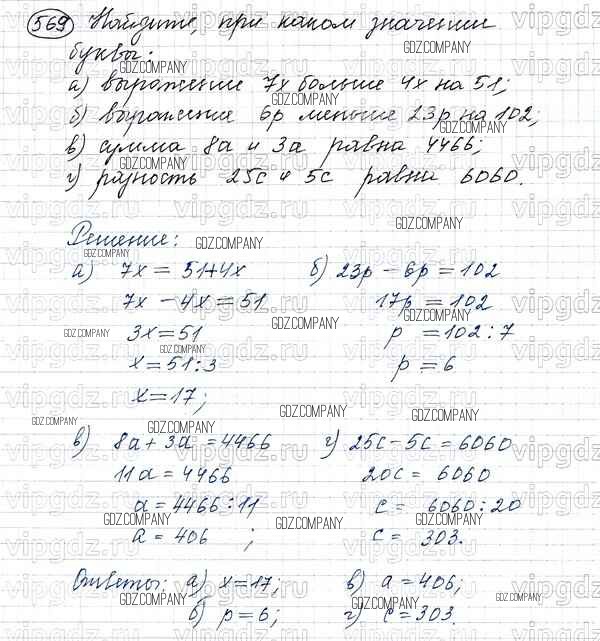 569 Найдите, при каком значении
буквы:
а) выражение 7x больше 4x на 51;
б) выражение 6p меньше 23p на 102;
в) сумма 8a и 3a равна 4466;
г) разность 25c и 5c равна 6060.
Решение:
а) 7x = 51+4x
7x - 4x = 51
3x = 51
x = 51:3
x = 17;
б) 23p - 6p = 102
17p = 102
p = 102:7
p = 6
в) 8a + 3a = 4466
11a = 4466
a = 4466:11
a = 406 ;
г) 25c - 5c = 6060
20c = 6060
c = 6060:20
c = 303.
Ответы: а) x = 17; в) a = 406;
б) p = 6; г) c = 303.
GDZ.COMPANY
vipgdz.ru